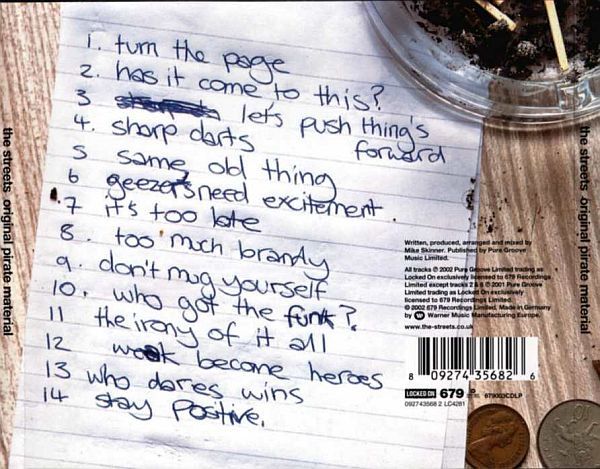 1. turn the page
2. has it come to this?
3 let's push thing's
forward
4. sharp darts
5 same old thing
6 geezers need excitement
7 it's too late
8. too much brandy
9. don't mug yourself
10. who got the funk?
11 the irony of it all
12 weak become heroes
13 who dares wins
14 stay positive.
the streets original pirate material
the streets original pirate material
Written, produced, arranged and mixed by
Mike Skinner. Published by Pure Groove
Music Limited.
All tracks ℗ 2002 Pure Groove Limited trading as
Locked On exclusively licensed to 679 Recordings
Limited except tracks 2 & 8 ℗ 2001 Pure Groove
Limited trading as Locked On exclusively
licensed to 679 Recordings Limited.
© 2002 679 Recordings Limited. Made in Germany
by Warner Music Manufacturing Europe.
www.the-streets.co.uk
8 09274 35682 6
LOCKED ON 679 679003CDLP
092743568 2 LC4281